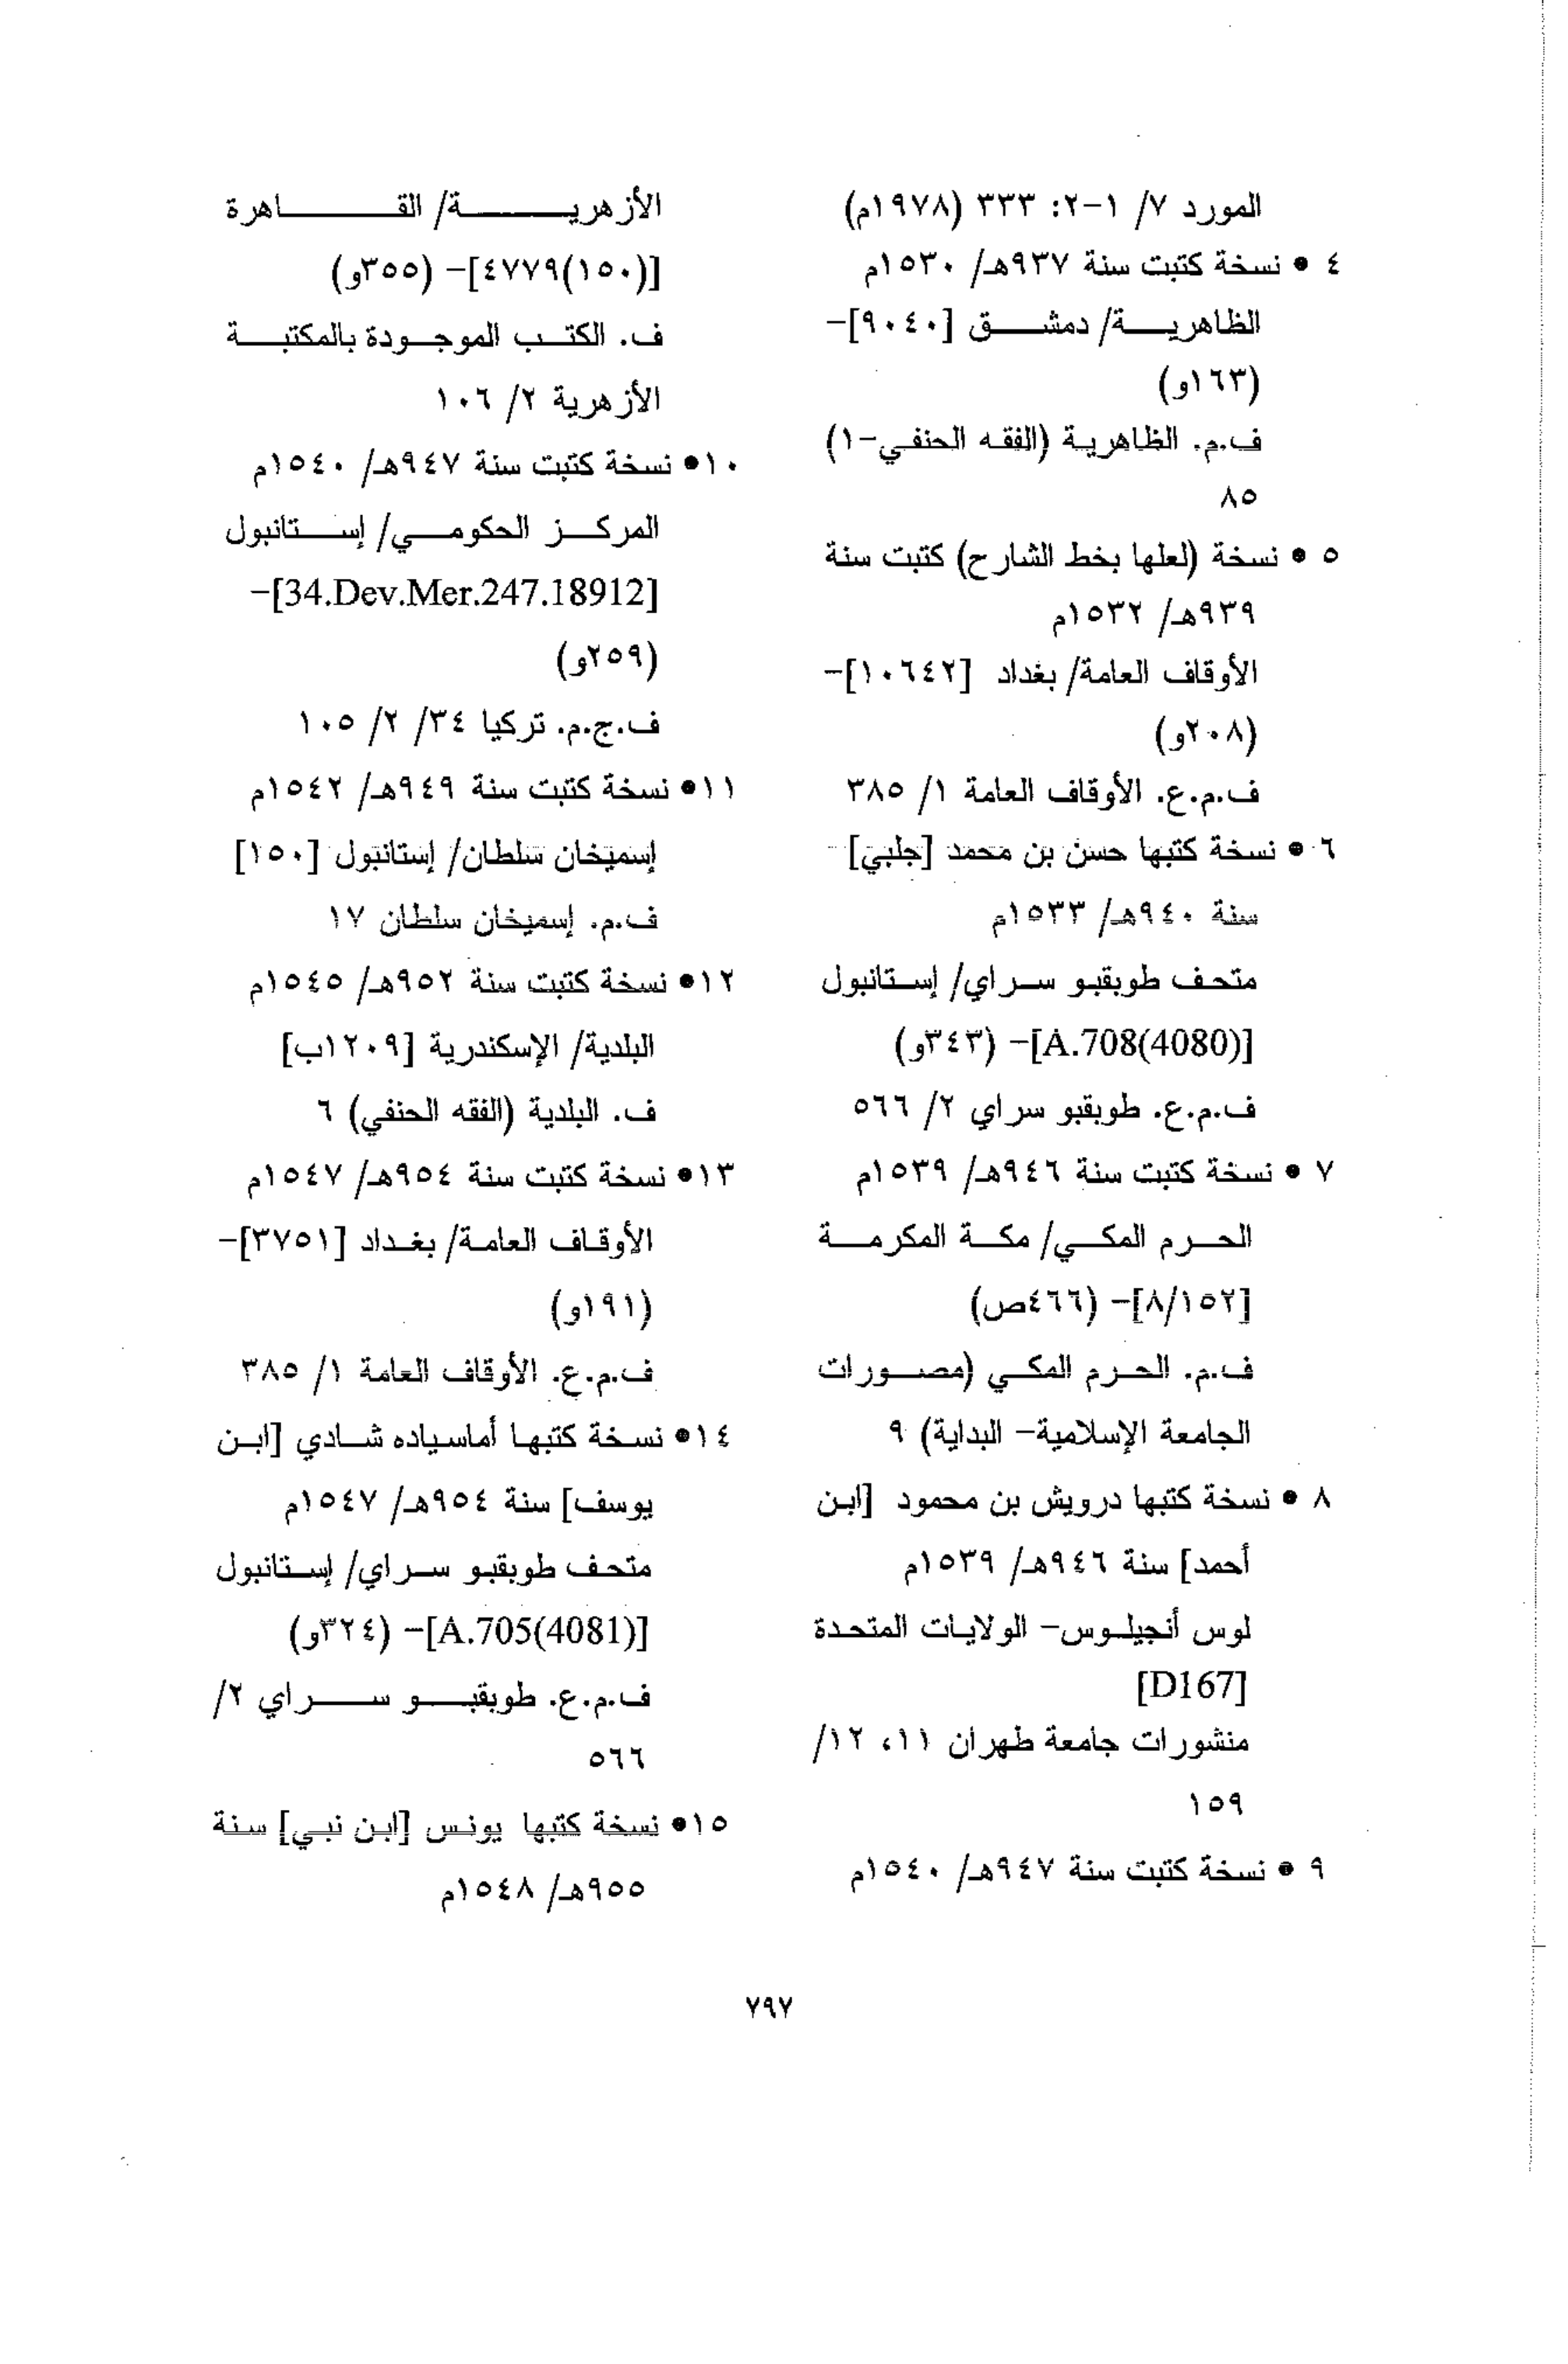 المورد ٧/ ١-٢: ٣٣٣ (١٩٧٨م)
٤ • نسخة كتبت سنة ٩٣٧هـ/ ١٥٣٠م
الظاهرية/ دمشق [٩٠٤٠]-
(١٦٣و)
ف.م. الظاهرية (الفقه الحنفي-١)
٨٥
٥ • نسخة (لعلها بخط الشارح) كتبت سنة
٩٣٩هـ/ ١٥٣٢م
الأوقاف العامة/ بغداد [١٠٦٤٢]-
(٢٠٨و)
ف.م.ع. الأوقاف العامة ١/ ٣٨٥
٦ • نسخة كتبها حسن بن محمد [جلبي]
سنة ٩٤٠هـ/ ١٥٣٣م
متحف طوبقبو سراي/ إستانبول
[A.708(4080)]- (٣٤٣و)
ف.م.ع. طوبقبو سراي ٢/ ٥٦٦
٧ • نسخة كتبت سنة ٩٤٦هـ/ ١٥٣٩م
الحرم المكي/ مكة المكرمة
[٨/١٥٢]- (٤٦٦ص)
ف.م. الحرم المكي (مصورات
الجامعة الإسلامية- البداية) ٩
٨ • نسخة كتبها درويش بن محمود [ابن
أحمد] سنة ٩٤٦هـ/ ١٥٣٩م
لوس أنجيلوس- الولايات المتحدة
[D167]
منشورات جامعة طهران ١١، ١٢/
١٥٩
٩ • نسخة كتبت سنة ٩٤٧هـ/ ١٥٤٠م
الأزهرية/ القاهرة
[(١٥٠)٤٧٧٩]- (٣٥٥و)
ف. الكتب الموجودة بالمكتبة
الأزهرية ٢/ ١٠٦
١٠• نسخة كتبت سنة ٩٤٧هـ/ ١٥٤٠م
المركز الحكومي/ إستانبول
[34.Dev.Mer.247.18912]-
(٢٥٩و)
ف.ج.م. تركيا ٣٤/ ٢/ ١٠٥
١١• نسخة كتبت سنة ٩٤٩هـ/ ١٥٤٢م
إسميخان سلطان/ إستانبول [١٥٠]
ف.م. إسميخان سلطان ١٧
١٢• نسخة كتبت سنة ٩٥٢هـ/ ١٥٤٥م
البلدية/ الإسكندرية [١٢٠٩ب]
ف. البلدية (الفقه الحنفي) ٦
١٣• نسخة كتبت سنة ٩٥٤هـ/ ١٥٤٧م
الأوقاف العامة/ بغداد [٣٧٥١]-
(١٩١و)
ف.م.ع. الأوقاف العامة ١/ ٣٨٥
١٤• نسخة كتبها أماسياده شادي [ابن
يوسف] سنة ٩٥٤هـ/ ١٥٤٧م
متحف طوبقبو سراي/ إستانبول
[A.705(4081)]- (٣٢٤و)
ف.م.ع. طوبقبو سراي ٢/
٥٦٦
١٥• نسخة كتبها يونس [ابن نبي] سنة
٩٥٥هـ/ ١٥٤٨م
٧٩٧